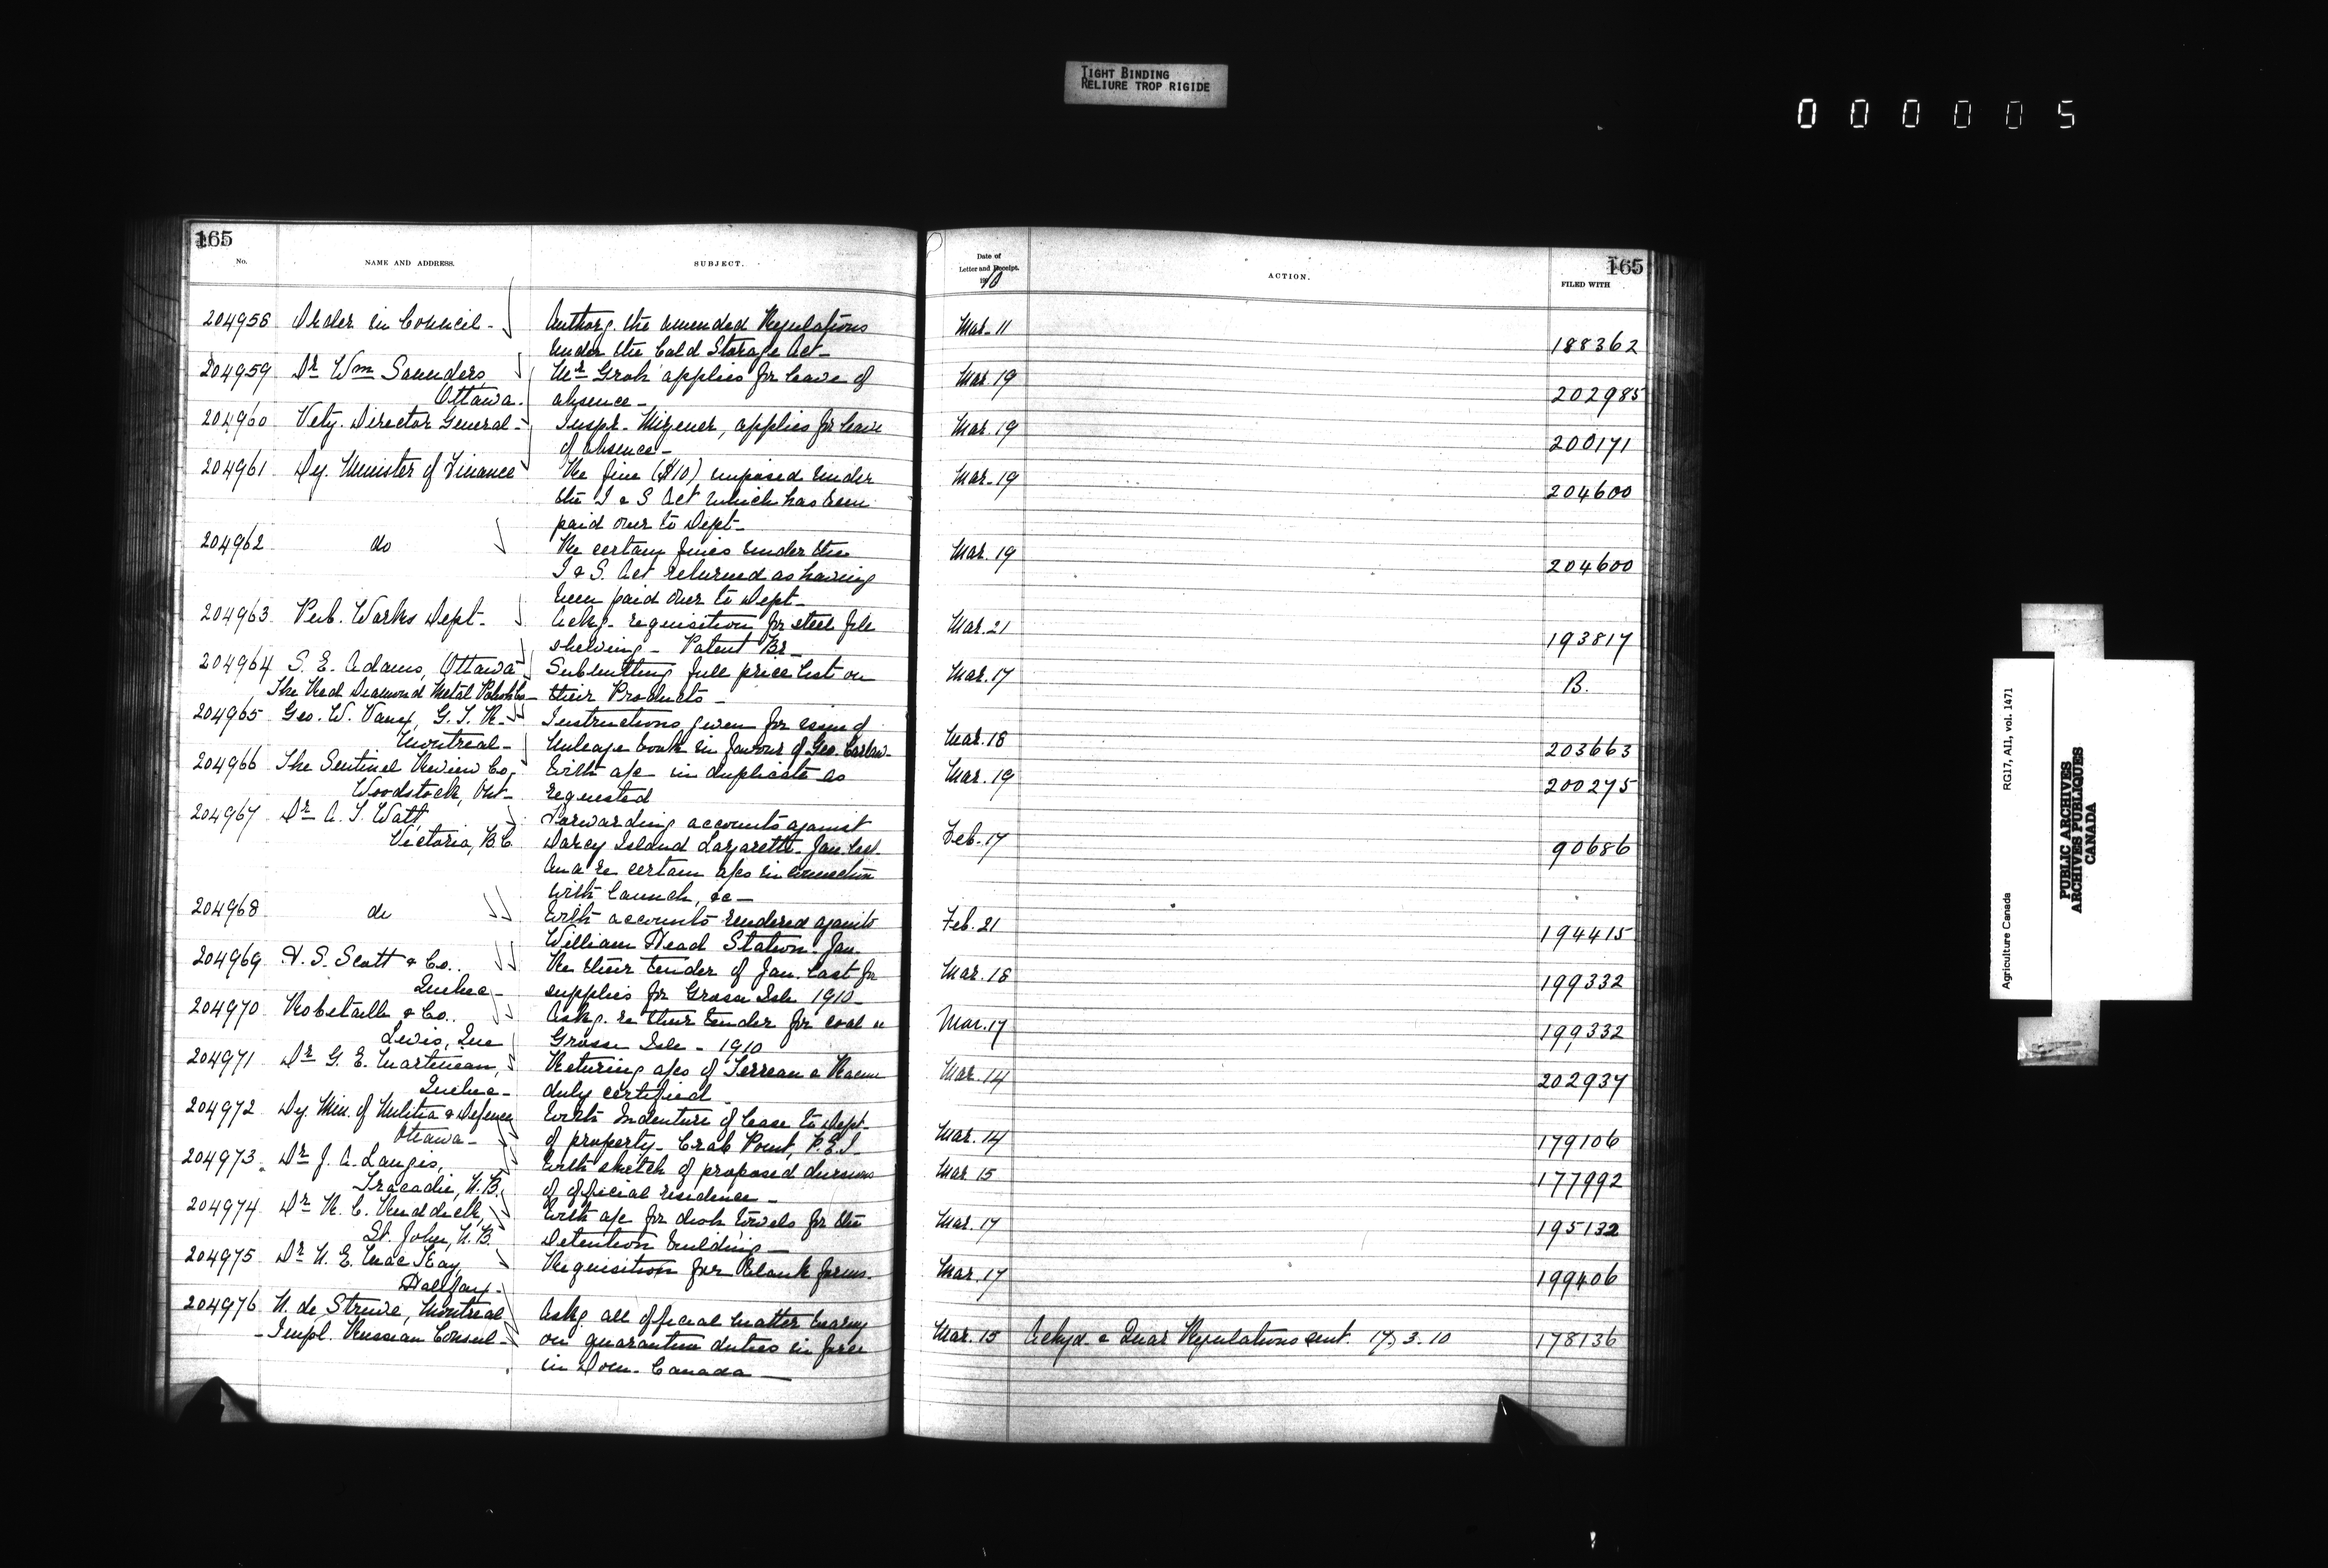 TIGHT BINDING
RELIURE TROP RIGIDE
000005
165
No. NAME AND ADDRESS. SUBJECT.
204958 Order in Council - Authorg. the amended Regulations
under the Cold Storage Act -
204959 Dr Wm Saunders, Mr Groh applies for leave of
Ottawa. absence -
204960 Vety. Director General - Inspr. Misener, applies for leave
of absence -
204961 Dy. Minister of Finance Re fine ($10) imposed under
the I & S Act which has been
paid over to Dept -
204962 do Re certain fines under the
I & S. Act returned as having
been paid over to Dept -
204963 Pub. Works Dept - Ackg. requisition for steel file
shelving - Patent Br -
204964 S. E. Adams, Ottawa Submitting full price list on
The Red Diamond Metal Polish Co - their Products -
204965 Geo. W. Vaux, G. T. R. - Instructions given for issue of
Montreal - Mileage book in favour of Geo. Carlaw -
204966 The Sentinel Review Co, With a/c in duplicate as
Woodstock, Ont - requested
204967 Dr A. T. Watt, Forwarding accounts against
Victoria, B.C. Darcy Island Lazaretto - Jan. last
and re certain a/cs in connection
with launch, &c -
204968 do With accounts rendered against
William Head Station - Jan.
204969 H. S. Scott & Co.. Re their tender of Jan. last for
Quebec - supplies for Grosse Isle 1910 -
204970 Robitaille & Co.. Askg. re their tender for coal
Levis, Que Grosse Isle - 1910
204971 Dr G. E. Martineau, Returning a/cs of Terreau & Racine
Quebec - duly certified -
204972 Dy. Min. of Militia & Defence With Indenture of lease to Dept -
Ottawa - of property - Crab Point, P.E.I -
204973 Dr J. A. Langis, With sketch of proposed
Tracadie, N.B. of official residence -
204974 Dr R. C. Ruddick, With a/c for dish towels for the
St. John, N.B. Detention Building -
204975 Dr N. E. MacKay, Requisition for blank forms -
Halifax -
204976 N. de Struve, Montreal Askg all official matter bearing
- Impl. Russian Consul - on quarantine duties in force
in Dom. Canada -
165
Date of
Letter and Receipt.
1910
ACTION. FILED WITH
Mar. 11 188362
Mar. 19 202985
Mar. 19 200171
Mar. 19 204600
Mar. 19 204600
Mar. 21 193817
Mar. 17 B.
Mar. 18 203663
Mar. 19 200275
Feb. 17 90686
Feb. 21 194415
Mar. 18 199332
Mar. 17 199332
Mar. 14 202937
Mar. 14 179106
Mar 15 177992
Mar. 17 195132
Mar. 17 199406
Mar. 15 Ackgd. & Quar Regulations sent. 17.3.10 178136
Agriculture Canada RG17, A11, vol. 1471
PUBLIC ARCHIVES
ARCHIVES PUBLIQUES
CANADA